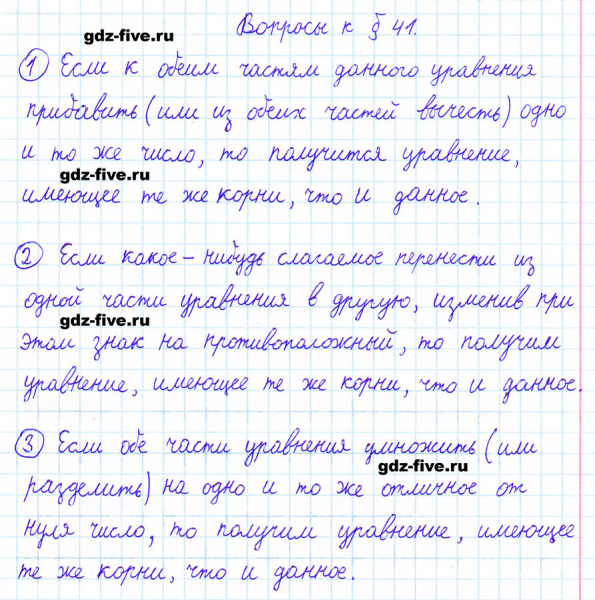 Вопросы к § 41.
gdz-five.ru
1 Если к обеим частям данного уравнения
прибавить (или из обеих частей вычесть) одно
и то же число, то получится уравнение,
gdz-five.ru
имеющее те же корни, что и данное.
2 Если какое-нибудь слагаемое перенести из
одной части уравнения в другую, изменив при
gdz-five.ru
этом знак на противоположный, то получим
уравнение, имеющее те же корни, что и данное.
3 Если обе части уравнения умножить (или
gdz-five.ru
разделить) на одно и то же отличное от
нуля число, то получим уравнение, имеющее
те же корни, что и данное.